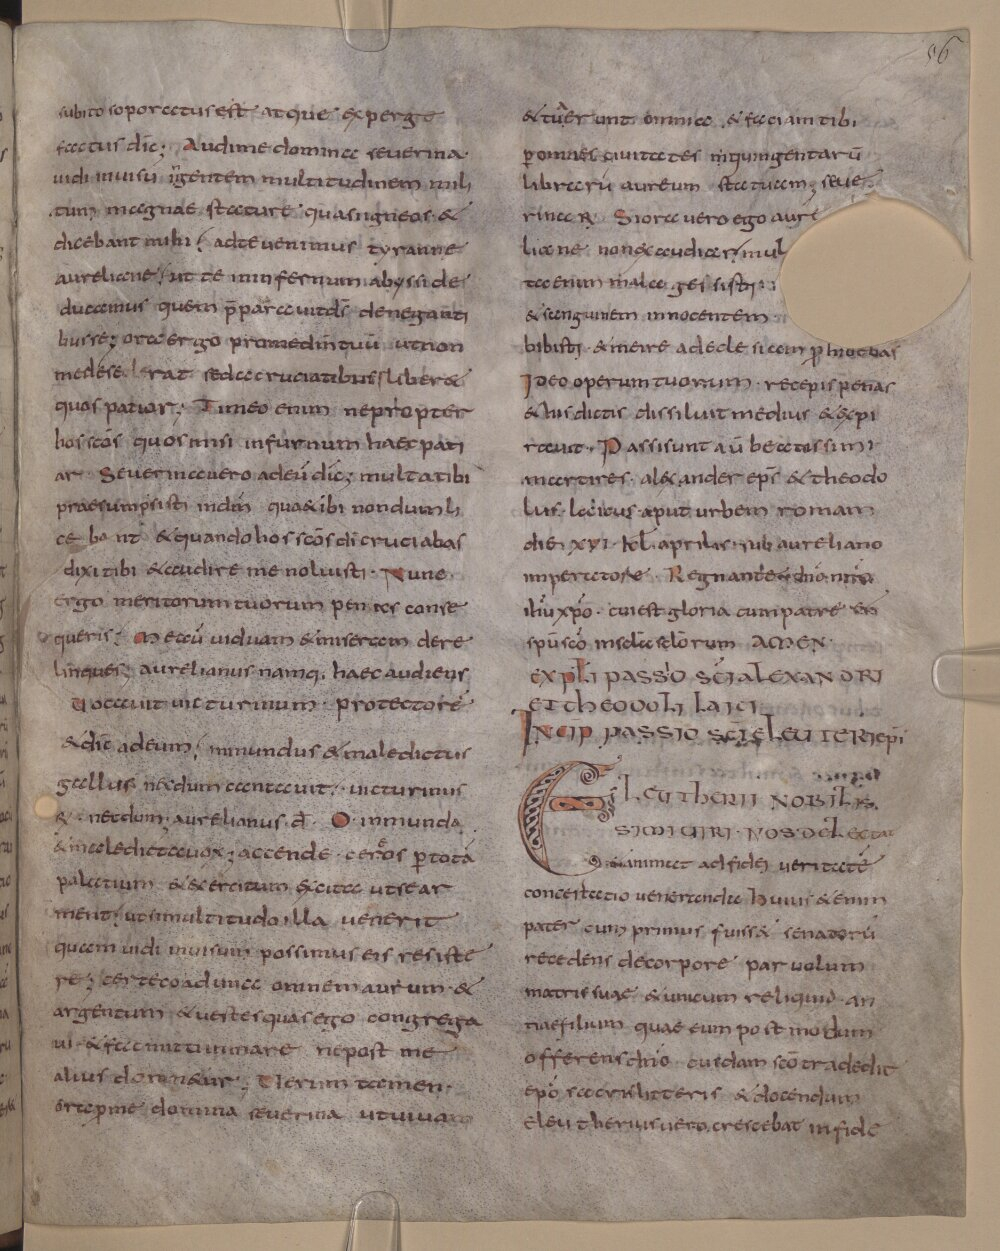 56
subito soporatus est atque experge
factus dic; Audi me domina severina
vidi in visu ingentem multitudinem mili
tum magnae staturae quasi igneos &
dicebant mihi ad te venimus tyranne
aureliane ut te in infernum abyssi de
ducamus quem p̄paravit ds̄ deneganti
busse; ora ergo pro me dn̄m tuū ut non
me deserat sed a cruciatibus liber&
quos patior; Timeo enim ne propter
hos scōs quos misi in furnum haec pati
ar Severina vero ad eū dic; multa tibi
praesumpsisti in dn̄i quae tibi nondum li
cebant & quando hos scōs di cruciabas
dixi tibi & audire me noluisti Nunc
ergo meritorum tuorum penas conse
queris; Mecū viduam & miseram dere
linques; aurelianus namq; haec audiens
vocavit victurinum protectorē
& dic̄ ad eum inmundus & maledictus
gallus nedum cantavit victurinus
R nec dum aurelianus d̄ O inmunda
& maledicta vox; accende cereos p totā
palatium & exercitum excita ut se ar
ment ut si multitudo illa venerit
quam vidi in visum possimus eis resiste
re; certe coaduna omnem aurum &
argentum & vestes quas ego congrega
vi & fac mittinare ne post me
alius donen&ur; Verum tamen
ora p me domina severina ut vivam
& tulerunt omnia & faciam tibi
p omnes civitates in quingentarū
librarū aurum statuam; seve
rina R Si ora vero ego aure
liane non exaudier mul
ta enim mala gessisti
& sanguinem innocentem
bibisti & mei re ad ede sicam phiobas
Ideo operum tuorum recepis penas
& his dictis dissiluit medius & expi
ravit Passi sunt aū beatissimi
martires alexander ep̄s & theodo
lus laicus aput urbem romam
die xvi kl aprilis sub aureliano
imperatore Regnante dn̄o nr̄o
ihū xpō cui est gloria cum patre &
spū scō in saecla saeclorum AMEN
EXPLI PASSIO SCI ALEXANDRI
ET THEODOLI LAICI
INCIP PASSIO SCI ELEUTERI EPI
ELEUTHERII NOBILIS
SIMI VIRI NOS DELECTAT
animat ad fidei veritatē
conestatio veneranda Huius & enim
pater cum primus fuiss& senatorū
recedens de corpore parvolum
matris suae & unicum reliquid an
thiae filium quae eum postmodum
offerens chr̄o cuidam scō tradedit
epō sacris litteris & docendum
eleutherius vero crescebat in fide